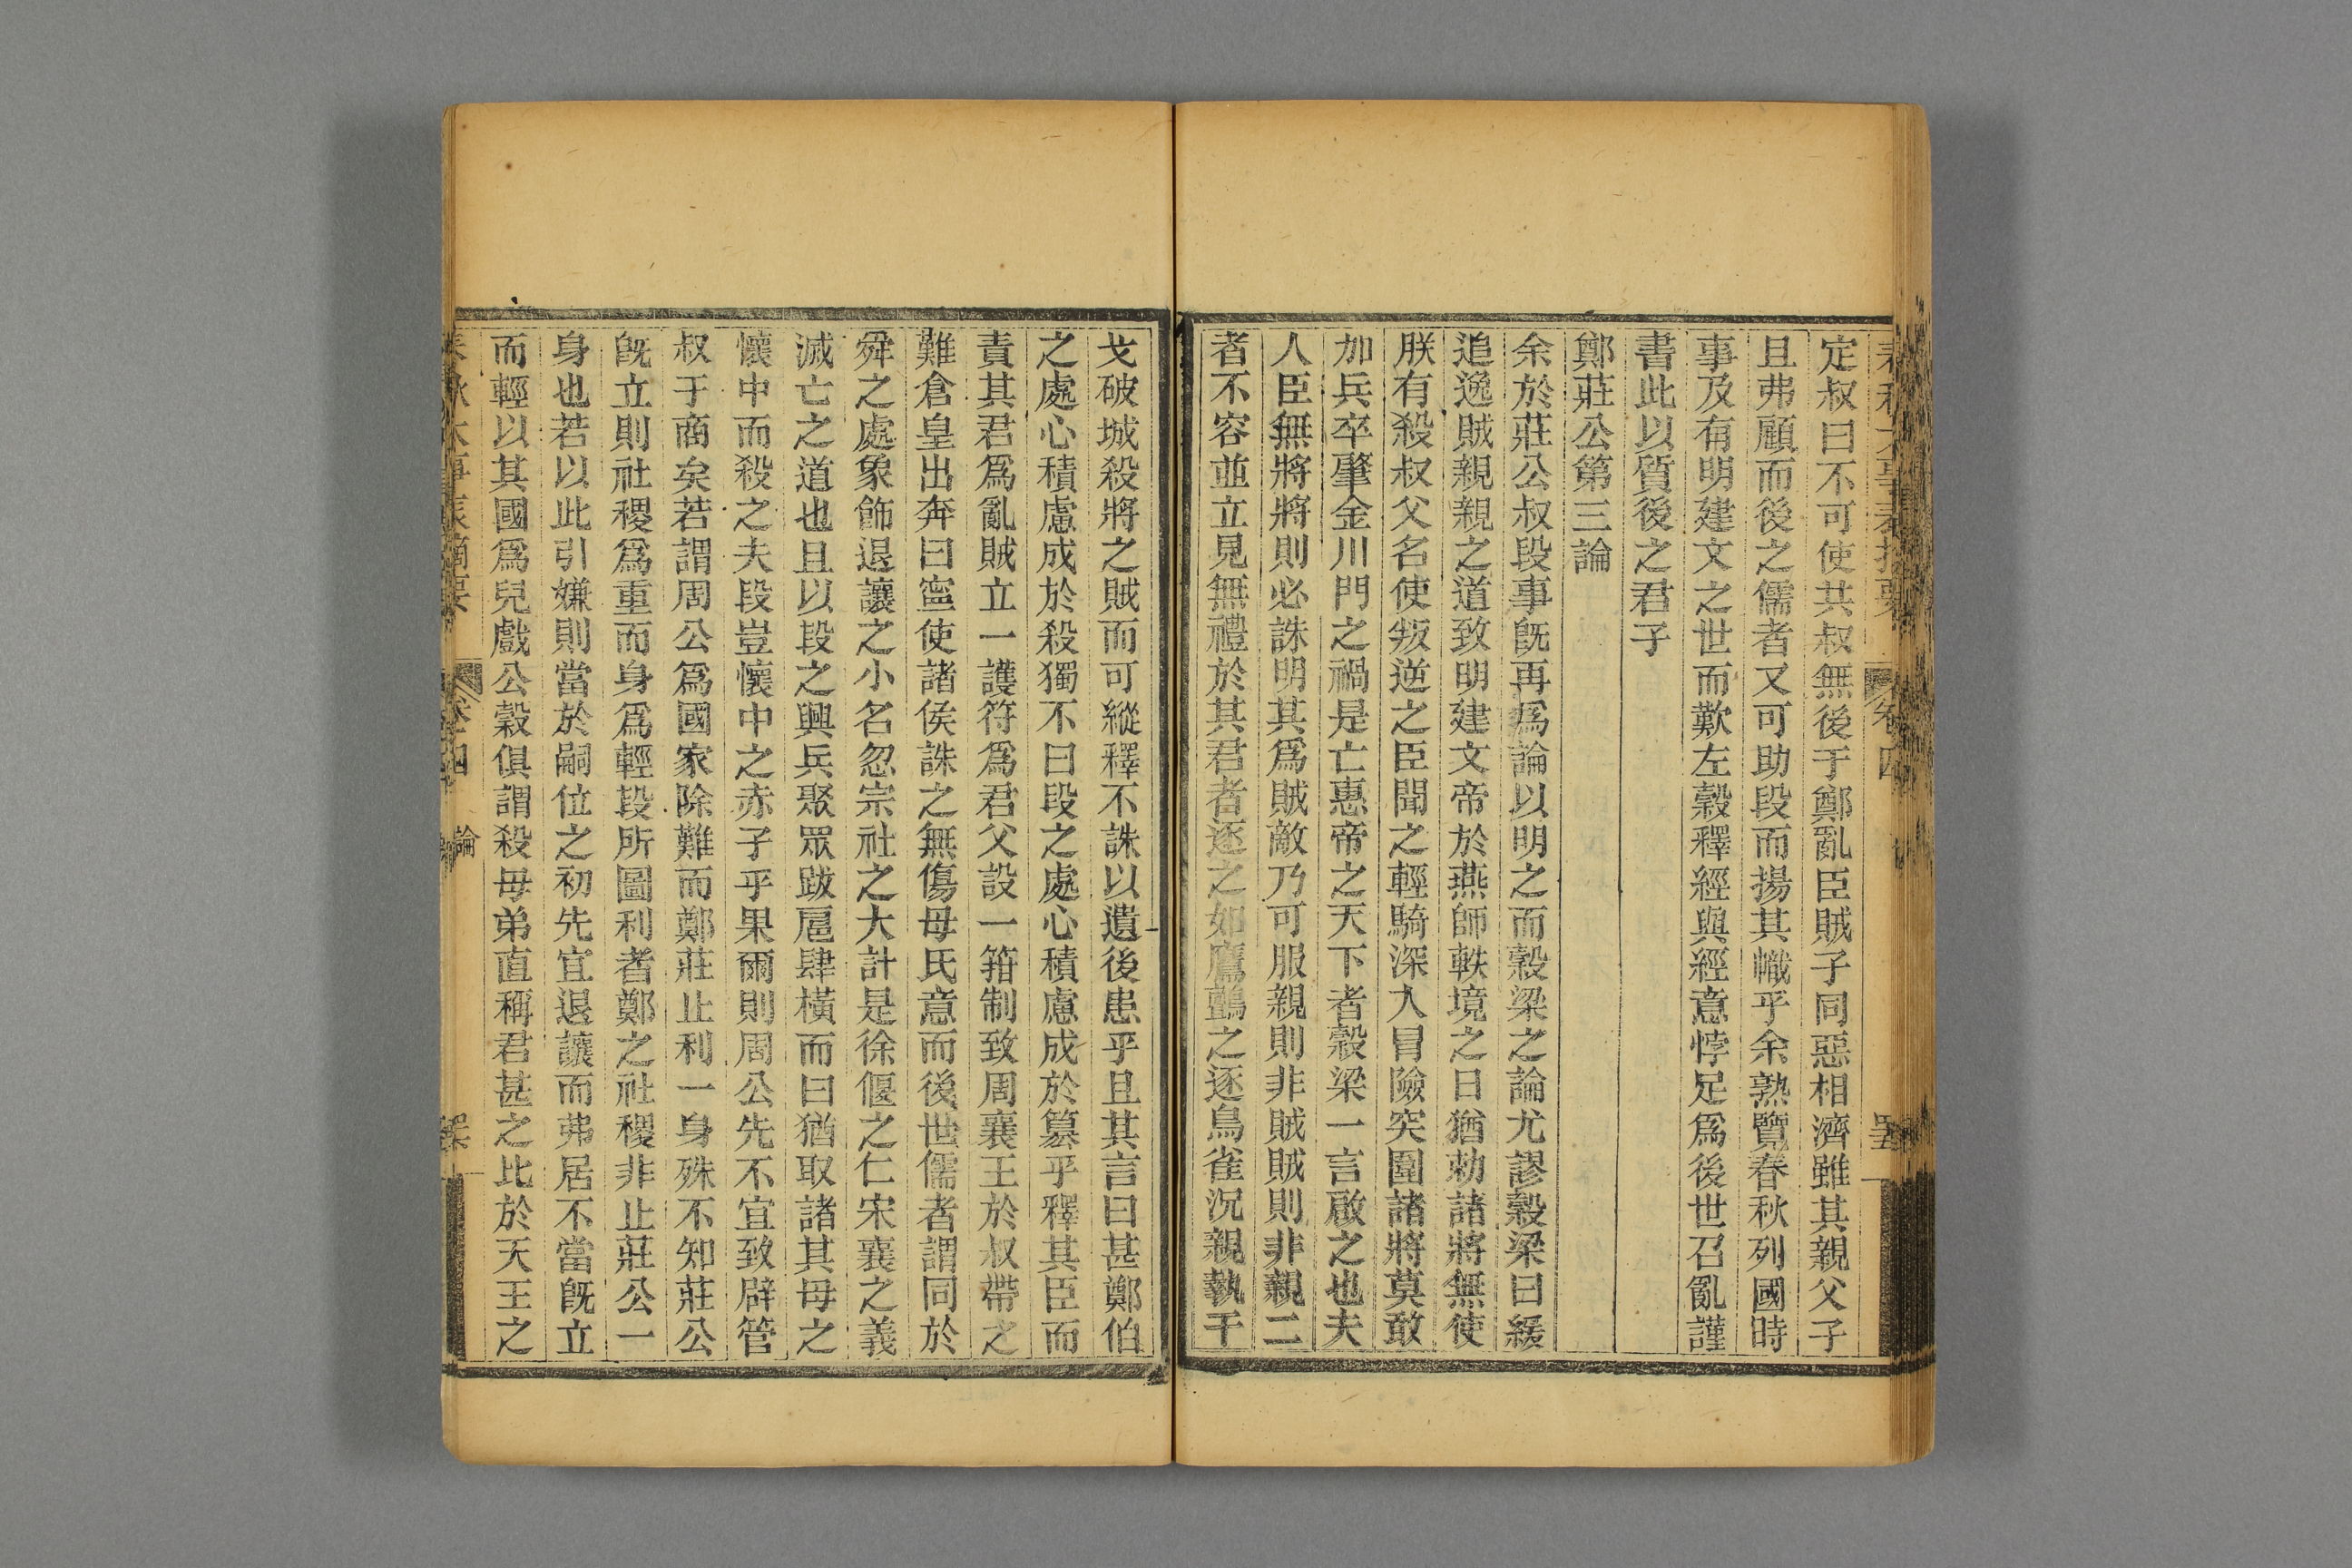 定叔曰不可使共叔無後于鄭亂臣賊子同惡相濟雖其親父子
且弗顧而後之儒者又可助段而揚其幟乎余熟覽春秋列國時
事及有明建文之世而歎左穀釋經與經意悖足爲後世召亂謹
書此以質後之君子
鄭莊公第三論
余於莊公叔段事旣再爲論以明之而穀梁之論尤謬穀梁曰緩
追逸賊親親之道致明建文帝於燕師軼境之日猶勑諸將無使
朕有殺叔父名使叛逆之臣聞之輕騎深入冒險突圍諸將莫敢
加兵卒肇金川門之禍是亡惠帝之天下者穀梁一言啟之也夫
人臣無將將則必誅明其爲賊敵乃可服親則非賊賊則非親二
者不容並立見無禮於其君者逐之如鷹鸇之逐鳥雀況親執干
戈破城殺將之賊而可縱釋不誅以遺後患乎且其言曰甚鄭伯
之處心積慮成於殺獨不曰段之處心積慮成於篡乎釋其臣而
責其君爲亂賊立一護符爲君父設一箝制致周襄王於叔帶之
難倉皇出奔曰寧使諸侯誅之無傷母氏意而後世儒者謂同於
舜之處象飾退讓之小名忽宗社之大計是徐偃之仁宋襄之義
滅亡之道也且以段之興兵聚眾跋扈肆橫而曰猶取諸其母之
懷中而殺之夫段豈懷中之赤子乎果爾則周公先不宜致辟管
叔于商矣若謂周公爲國家除難而鄭莊止利一身殊不知莊公
旣立則社稷爲重而身爲輕段所圖利者鄭之社稷非止莊公一
身也若以此引嫌則當於嗣位之初先宜退讓而弗居不當旣立
而輕以其國爲兒戲公穀俱謂殺母弟直稱君甚之比於天王之
論